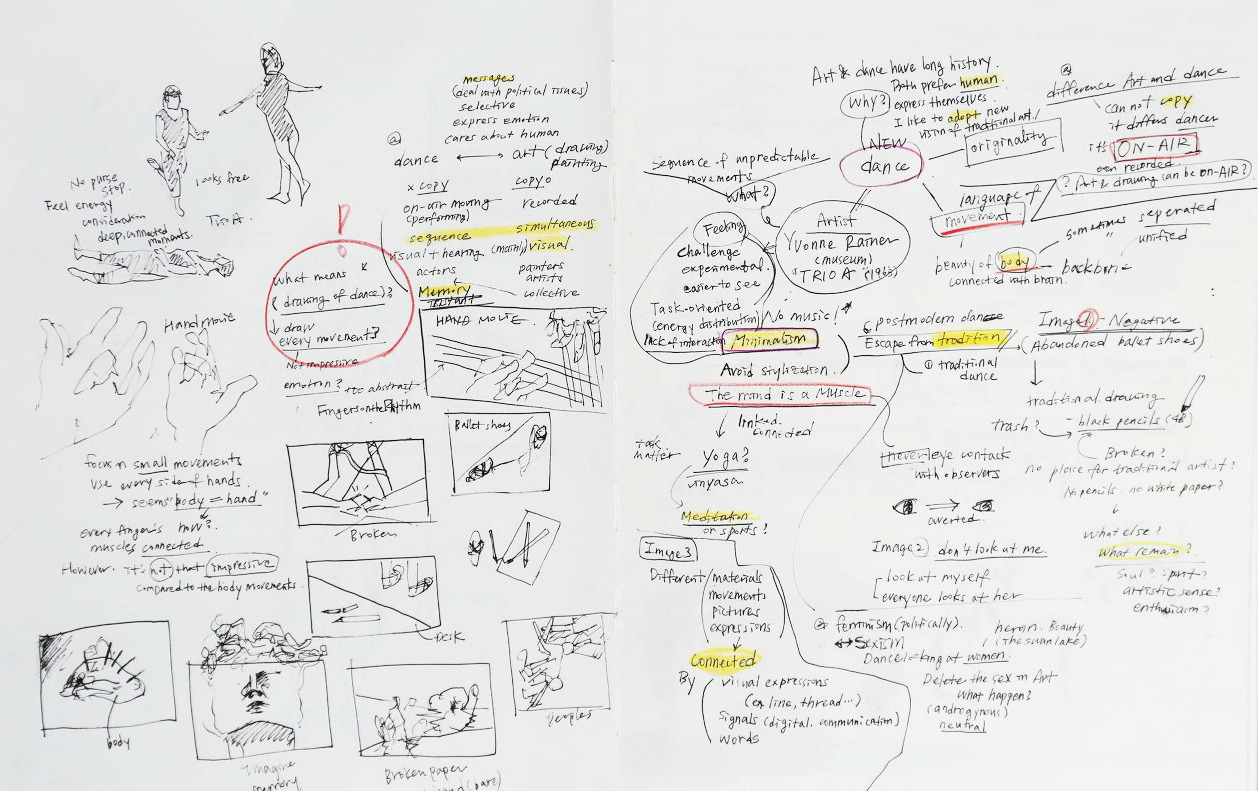 No purse
stop.
Feel energy
consideration
deep, connected
moments.
looks free
Twist.
messages
(deal with political issues)
selective
express emotion
cares about human
dance ⟷ art (drawing)
painting
x copy
copy o
on-air moving
(performing)
recorded
sequence
simultaneous
visual + hearing (mainly) visual.
actors
painters
artists
Memory
collective
What means
(drawing of dance)?
↓ draw
every movements?
Not impressive
emotion? too abstract
Fingers on the Rhythm
Hand movie
HAND MOVIE.
Ballet shoes
focus on small movements
Use every side of hands.
→ seems "body = hand"
every finger's how?
muscles connected.
However. it's not that impressive
compared to the body movements
Broken
Desk
body
Imagine
memory
Broken paper
(bare)
peoples
Art & dance have long history.
Both prefer human
express themselves.
I like to adopt new
vision of traditional art/
Why?
NEW
dance
originality
difference Art and dance
can not copy
it differs dancer
it's ON-AIR
recorded.
? Art & drawing can be on-AIR?
sequence of unpredictable
movements
What?
Feeling
challenge
experimental.
easier to see
Artist
Yvonne Rainer
(museum)
"TRIO A"
language of
movement
beauty of body — backbone
connected with brain.
sometimes seperated
" unified
Task-oriented
(energy distribution)
lack of interaction
No music!
Minimalism
Avoid stylization.
The mind is a Muscle
linked.
connected
task
matter
Yoga?
vinyasa
Meditation
or sports?
postmodern dance
Escape from tradition
① traditional
dance
never eye contack
with observers
averted.
Image 1 - Negative
(Abandoned ballet shoes)
traditional drawing
- black pencils (4B)
trash?
Broken?
no place for traditional artist?
No pencils. no white paper?
What else?
What remain?
Soul? spirit?
artistic sense?
enthusiasm?
Image 2 don't look at me.
look at myself
everyone looks at her
feminism (politically).
↔ SexISM
Dance looking at women.
heroin. Beauty
(The swan lake)
Delete the sex in Art
What happen?
(androgynous)
neutral
Image 3
Different
materials
movements
pictures
expressions
Connected
By
visual expressions
(ex line, thread...)
Signals (digital. communication)
words